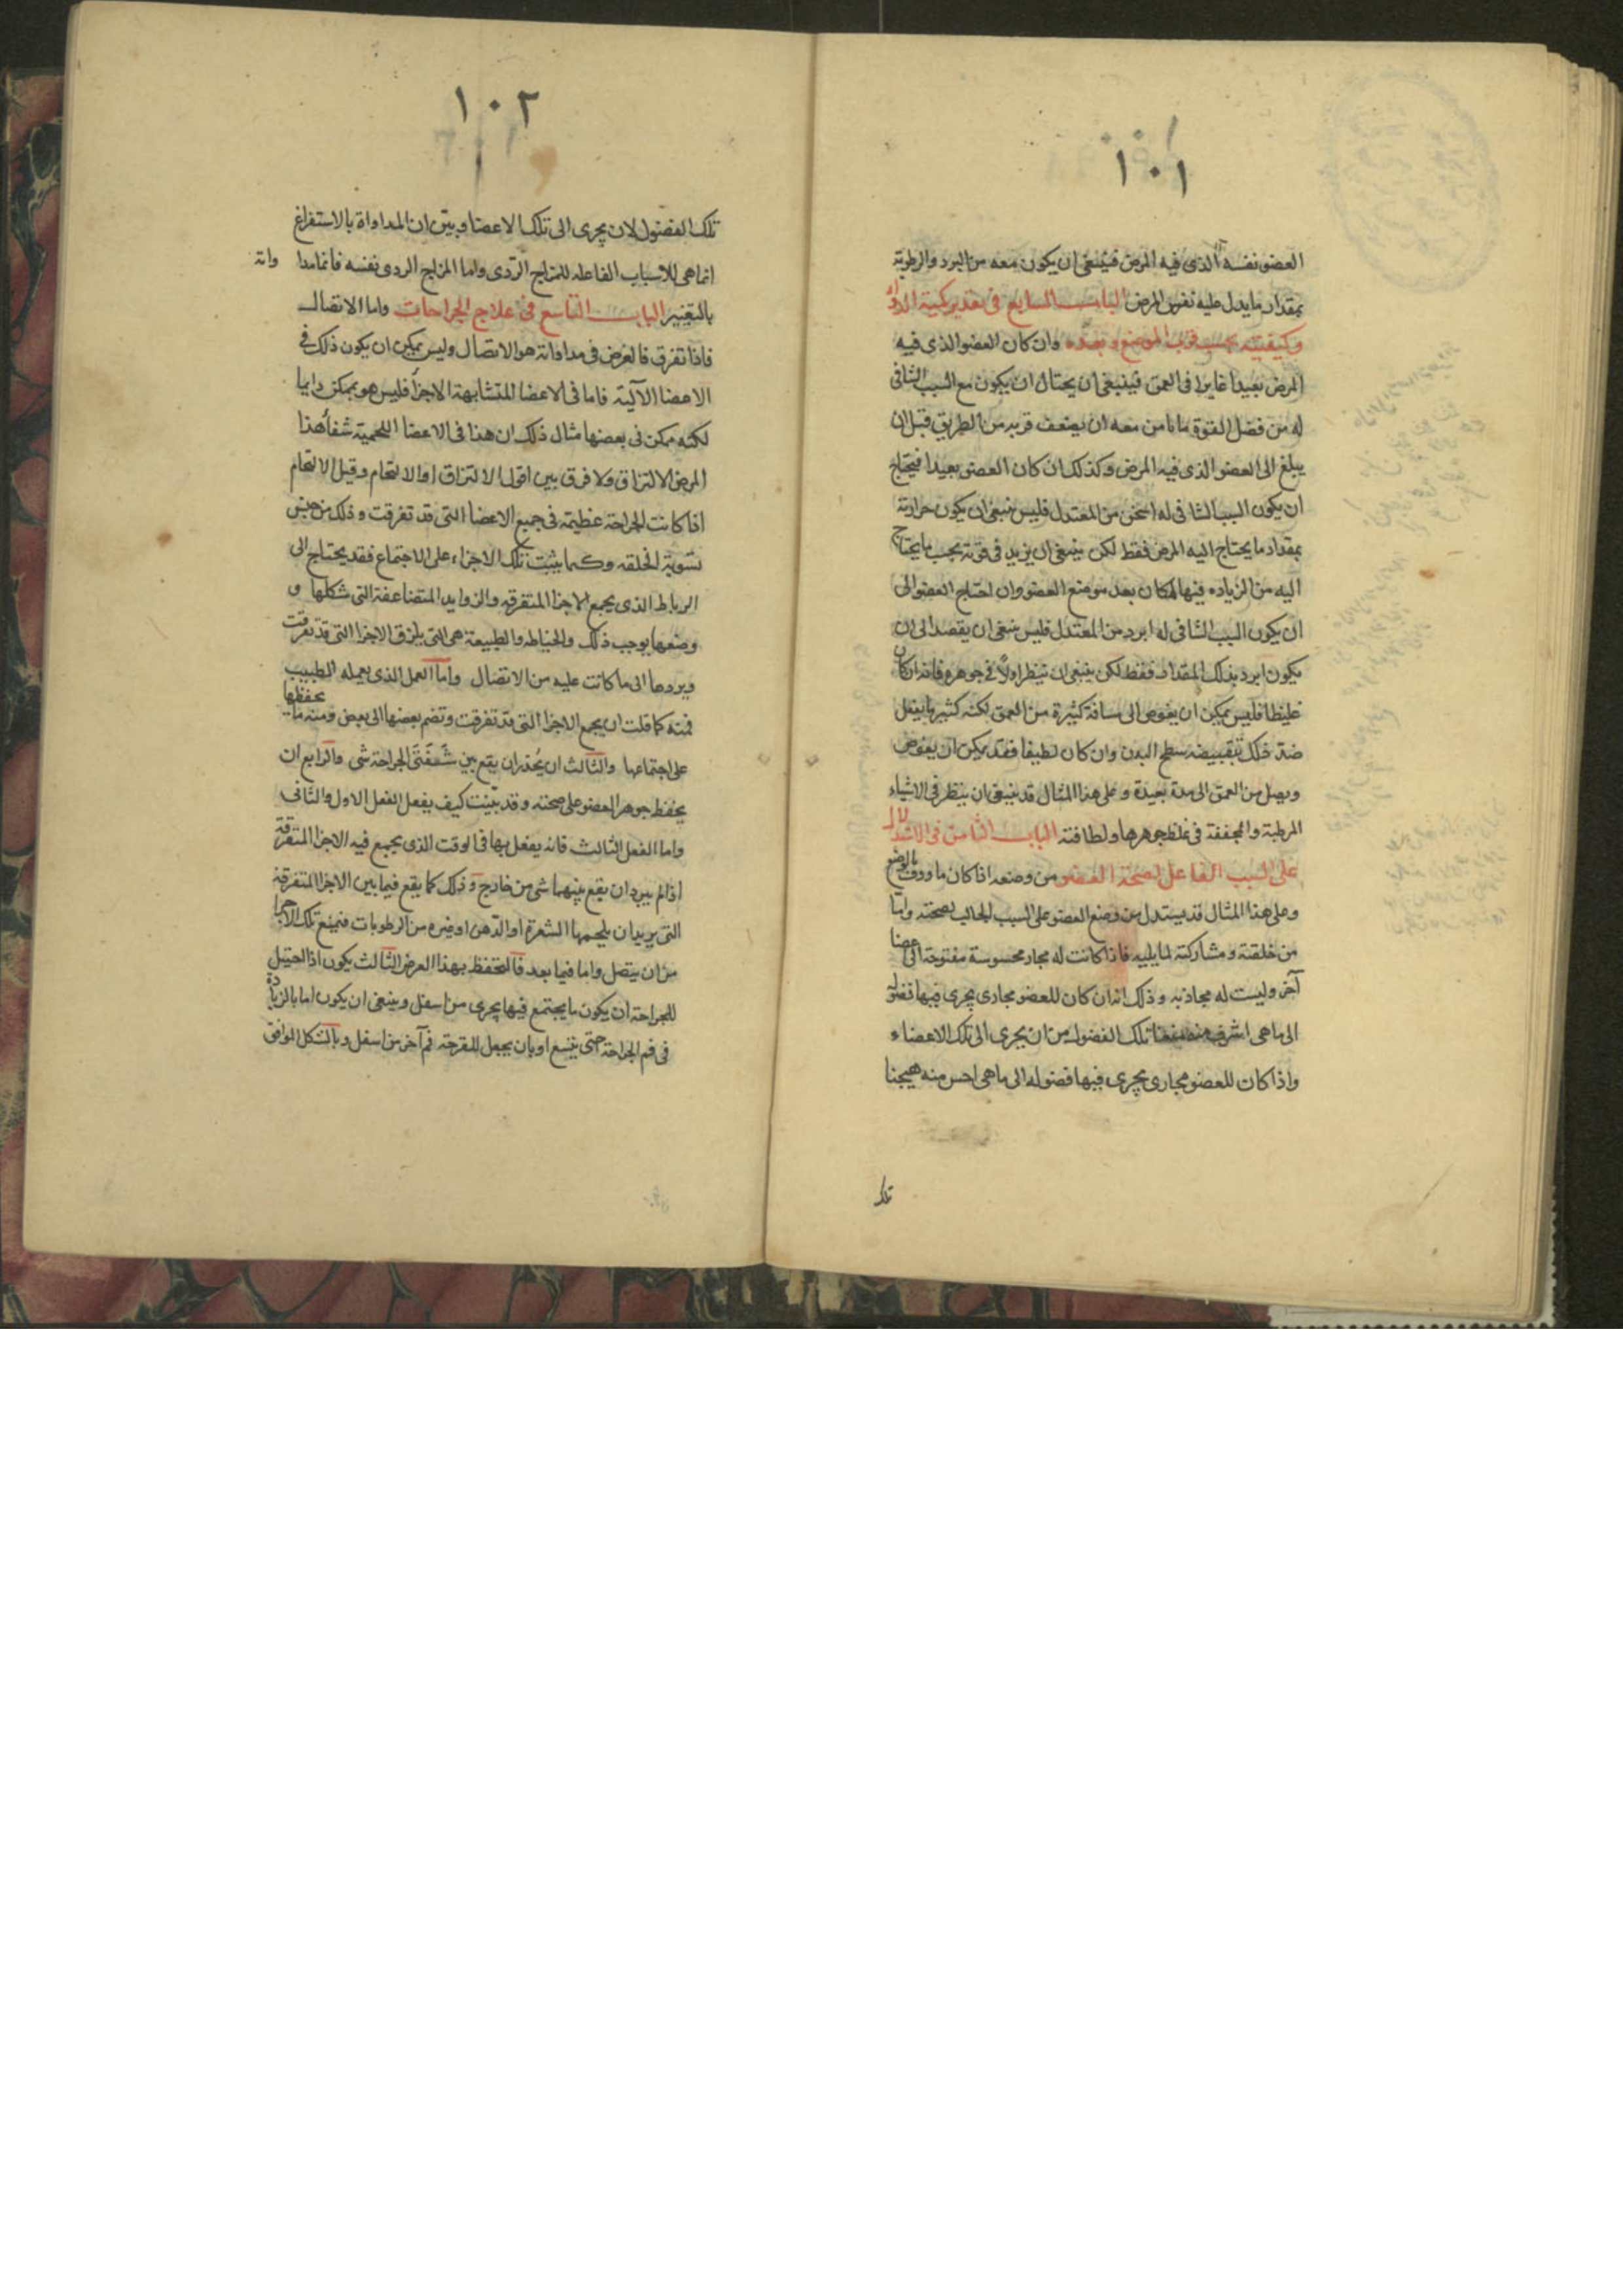 ١٠١
العضو نفسه الذى فيه المرض فينبغى ان يكون معه من البرد والرطوبة
بمقدار ما يدل عليه نفس المرض الباب السابع فى تقدير كمية الدواء
وكيفيته بحسب قرب الموضع وبعده وان كان العضو الذى فيه
المرض بعيدا غايرا فى العمق فينبغى ان يحتال ان يكون مع السبب الشافى
له من فضل القوة ما نامن معه ان يضعف قربه من الطريق قبل ان
يبلغ الى العضو الذى فيه المرض وكذلك ان كان العضو بعيدا فيحتاج
ان يكون السبب الشافى له اسخن من المعتدل فليس ينبغى ان يكون حرارته
بمقدار ما يحتاج اليه المرض فقط لكن ينبغى ان يزيد فى قوته بحسب ما يحتاج
اليه من الزياده فيها لمكان بعد موضع العضو وان احتاج العضو الى
ان يكون السبب الشافى له ابرد من المعتدل فليس ينبغى ان يقصد الى ان
يكون ابرد بذلك المقدار فقط لكن ينبغى ان تنظر اولاً فى جوهره فانه ان كان
غليظا فليس يمكن ان يغوص الى مسافة كثيرة من العمق لكنه كثيرا ما يفعل
ضد ذلك بتقبيضه سطح البدن وان كان لطيفا فقد يمكن ان يغوص
ويصل من العمق الى مدة بعيدة وعلى هذا المثال قد ينبغى ان ينظر فى الاشياء
المرطبة والمجففة فى غلظ جوهرها ولطافته الباب الثامن فى الاستدلال
على السبب الفاعل لصحة العضو من وضعه اذا كان ماووف بالوضع
وعلى هذا المثال قد يستدل من وضع العضو على السبب الجالب لصحته واما
من خلقته ومشاركته لما يليه فاذا كانت له مجار محسوسة مفتوحة الى عضا
آخر وليست له مجاذبه وذلك انه ان كان للعضو مجارى يجرى فيها فضوله
الى ما هى اشرف منه منعنا تلك الفضول من ان يجرى الى تلك الاعضاء
واذا كان للعضو مجارى يجرى فيها فضوله الى ما هى اخس منه هيجنا
تلك
١٠٢
تلك الفضول لان يجرى الى تلك الاعضا وبيّن ان المداواة بالاستفراغ
انما هى للاسباب الفاعله للمزاج الردى واما المزاج الردى نفسه فانما مدا واته
بالتغيير الباب التاسع فى علاج الجراحات واما الاتصال
فاذا تفرق فالغرض فى مداواته هو الاتصال وليس يمكن ان يكون ذلك فى
الاعضا الآلية فاما فى الاعضا المتشابهة الاجزاء فليس هو بممكن دايما
لكنه ممكن فى بعضها مثال ذلك ان هذا فى الاعضا اللحمية شفاء هذا
المرض الالتزاق ولا فرق بين اقول الالتزاق او الالتحام وقيل الالتحام
اذا كانت الجراحة عظيمة فى جميع الاعضا التى قد تفرقت وذلك من جنس
تسوية الخلقه وكيما يثبت تلك الاجزاء على الاجتماع فقد يحتاج الى
الرباط الذى يجمع الاجزا المتفرقه والزوايد المتضاعفة التى شكلها و
وضعها يوجب ذلك والخياطه والطبيعة هى التى يلزق الاجزا التى قد تفرقت
ويردها الى ما كانت عليه من الاتصال واما العمل الذى يعمله الطبيب
فمنه كما قلت ان يجمع الاجزا التى قد تفرقت وتضم بعضها الى بعض ومنه ما يحفظها
على اجتماعها والثالث ان يُحذر ان يقع بين شَفَتَى الجراحة شى والرابع ان
يحفظ جوهر العضو على صحته وقد بيّنت كيف يفعل الفعل الاول والثانى
واما الفعل الثالث فانه يفعل بها فى الوقت الذى يجمع فيه الاجزا المتفرقة
اذا لم يرد ان يقع بينهما شى من خارج وذلك كما يقع فيما بين الاجزا المتفرقة
التى يريد ان يلحمها الشعرة او الدهن او غيره من الرطوبات فتمنع تلك الاجزا
من ان يتصل واما فيما بعد فالتحفظ بهذا العرض الثالث يكون اذا احتيل
للجراحة ان يكون ما يجتمع فيها يجرى من اسفل وينبغى ان يكون اما بالزيادة
فى فم الجراحة حتى يتسع او بان يجعل للقرحة فم آخر من اسفل وبالشكل الموافق